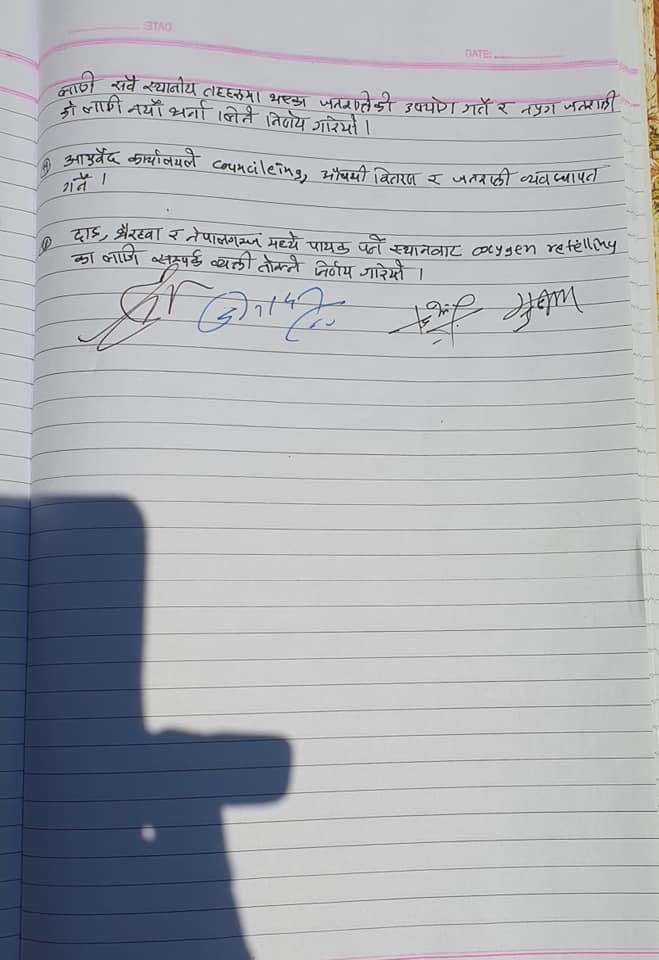 DATE
DATE:
लागी सबै स्थानीय तहहरुमा भएका जनशक्तिको उपयोग गर्ने र नपुग जनशक्ती
को लागी नयाँ भर्ना लिने निर्णय गरियो ।
आयुर्वेद कार्यालयले councileing, औषधी वितरण र जनशक्ती व्यवस्थापन
गर्ने ।
दाङ, भैरहवा र नेपालगन्ज मध्ये पायक पर्ने स्थानबाट oxygen refelling
का लागि सम्पर्क व्यक्ती तोक्ने निर्णय गरियो ।